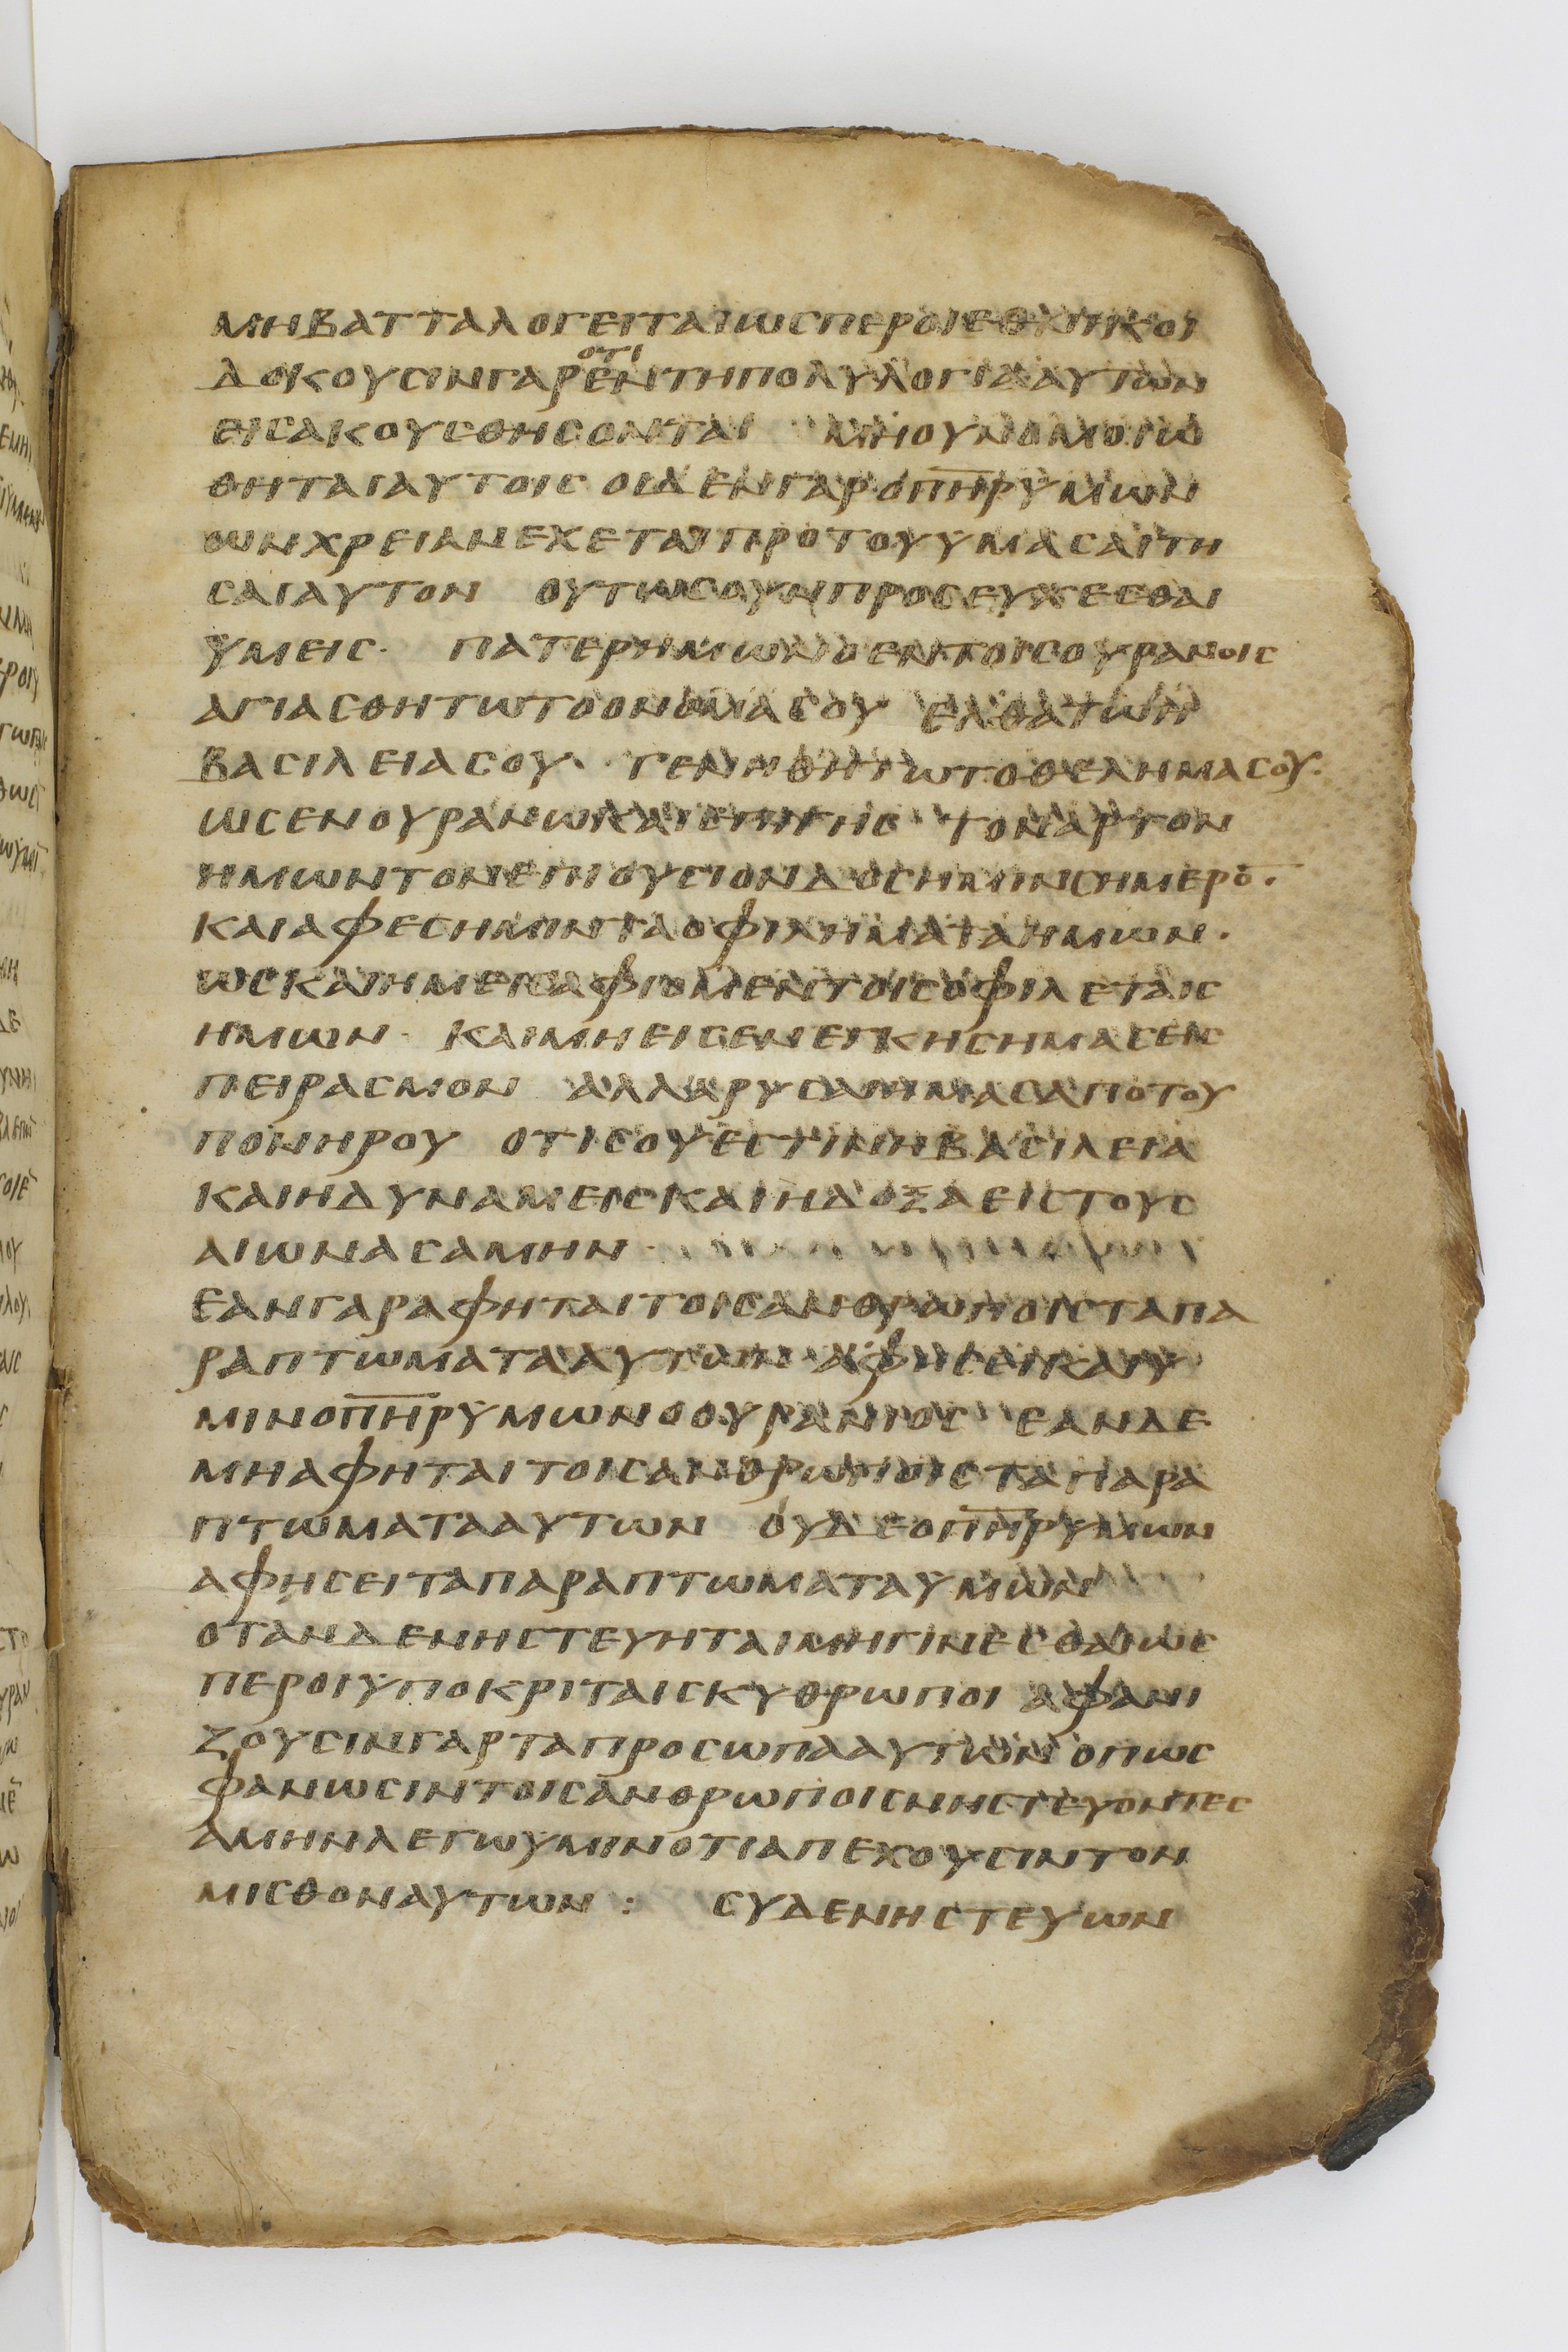 ΜΗΒΑΤΤΑΛΟΓΕΙΤΑΙΩϹΠΕΡΟΙΕΘΝΙΚΟΙ
ΔΟΚΟΥϹΙΝΓΑΡΟΤΙΕΝΤΗΠΟΛΥΛΟΓΙΑΑΥΤΩΝ
ΕΙϹΑΚΟΥϹΘΗϹΟΝΤΑΙ ΜΗΟΥΝΟΜΟΙΩ
ΘΗΤΑΙΑΥΤΟΙϹ ΟΙΔΕΝΓΑΡΟΠ̅Η̅Ρ̅ΥΜΩΝ
ΩΝΧΡΕΙΑΝΕΧΕΤΑΙΠΡΟΤΟΥΥΜΑϹΑΙΤΗ
ϹΑΙΑΥΤΟΝ ΟΥΤΩϹΟΥΝΠΡΟϹΕΥΧΕϹΘΑΙ
ΥΜΕΙϹ· ΠΑΤΕΡΗΜΩΝΟΕΝΤΟΙϹΟΥΡΑΝΟΙϹ
ΑΓΙΑϹΘΗΤΩΤΟΟΝΟΜΑϹΟΥ ΕΛΘΑΤΩΗ
ΒΑϹΙΛΕΙΑϹΟΥ· ΓΕΝΗΘΗΤΩΤΟΘΕΛΗΜΑϹΟΥ·
ΩϹΕΝΟΥΡΑΝΩΚΑΙΕΠΙΓΗϹ ΤΟΝΑΡΤΟΝ
ΗΜΩΝΤΟΝΕΠΙΟΥϹΙΟΝΔΟϹΗΜΙΝϹΗΜΕΡΟ̅·
ΚΑΙΑΦΕϹΗΜΙΝΤΑΟΦΙΛΗΜΑΤΑΗΜΩΝ·
ΩϹΚΑΙΗΜΕΙϹΑΦΙΟΜΕΝΤΟΙϹΟΦΙΛΕΤΑΙϹ
ΗΜΩΝ· ΚΑΙΜΗΕΙϹΕΝΕΓΚΗϹΗΜΑϹΕΙϹ
ΠΕΙΡΑϹΜΟΝ ΑΛΛΑΡΥϹΑΙΗΜΑϹΑΠΟΤΟΥ
ΠΟΝΗΡΟΥ ΟΤΙϹΟΥΕϹΤΙΝΗΒΑϹΙΛΕΙΑ
ΚΑΙΗΔΥΝΑΜΕΙϹΚΑΙΗΔΟΞΑΕΙϹΤΟΥϹ
ΑΙΩΝΑϹΑΜΗΝ·
ΕΑΝΓΑΡΑΦΗΤΑΙΤΟΙϹΑΝΘΡΩΠΟΙϹΤΑΠΑ
ΡΑΠΤΩΜΑΤΑΑΥΤΩΝ ΑΦΗϹΕΙΚΑΙΥ
ΜΙΝΟΠ̅Η̅Ρ̅ΥΜΩΝΟΟΥΡΑΝΙΟϹ ΕΑΝΔΕ
ΜΗΑΦΗΤΑΙΤΟΙϹΑΝΘΡΩΠΟΙϹΤΑΠΑΡΑ
ΠΤΩΜΑΤΑΑΥΤΩΝ ΟΥΔΕΟΠ̅Η̅Ρ̅ΥΜΩΝ
ΑΦΗϹΕΙΤΑΠΑΡΑΠΤΩΜΑΤΑΥΜΩΝ
ΟΤΑΝΔΕΝΗϹΤΕΥΗΤΑΙΜΗΓΙΝΕϹΘΑΙΩϹ
ΠΕΡΟΙΥΠΟΚΡΙΤΑΙϹΚΥΘΡΩΠΟΙ ΑΦΑΝΙ
ΖΟΥϹΙΝΓΑΡΤΑΠΡΟϹΩΠΑΑΥΤΩΝ ΟΠΩϹ
ΦΑΝΩϹΙΝΤΟΙϹΑΝΘΡΩΠΟΙϹΝΗϹΤΕΥΟΝΤΕϹ
ΑΜΗΝΛΕΓΩΥΜΙΝΟΤΙΑΠΕΧΟΥϹΙΝΤΟΝ
ΜΙϹΘΟΝΑΥΤΩΝ : ϹΥΔΕΝΗϹΤΕΥΩΝ